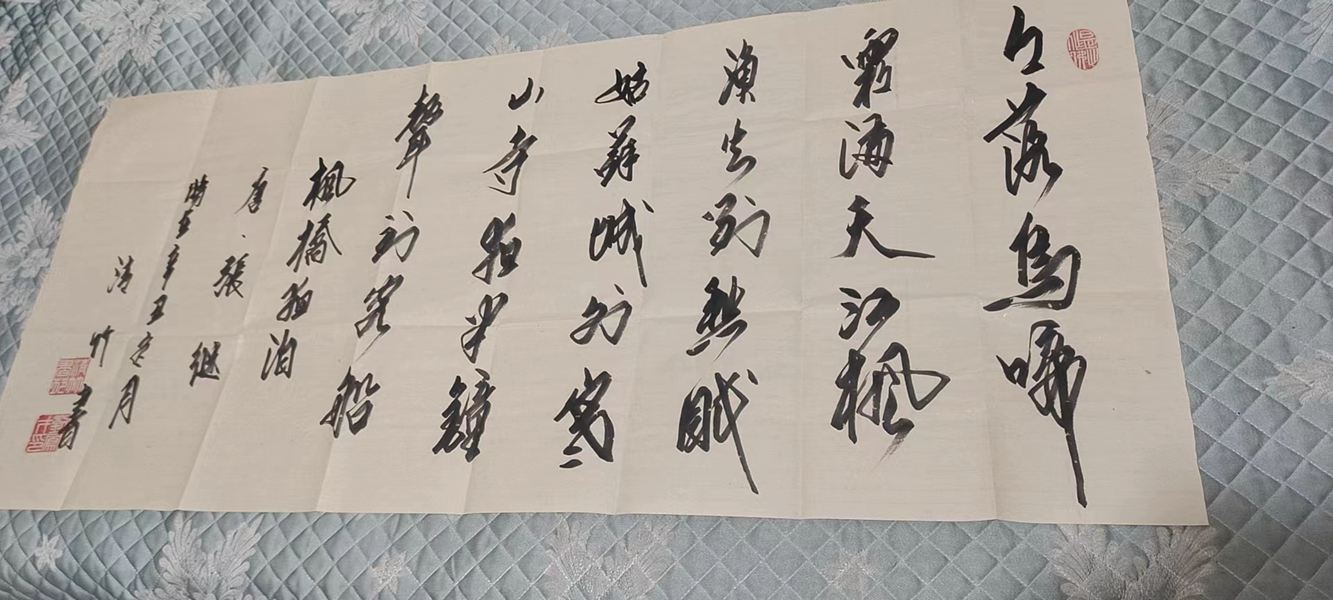 月落烏啼
霜滿天江楓
漁火對愁眠
姑蘇城外寒
山寺夜半鐘
聲到客船
楓橋夜泊
唐·張继
時在辛丑月
清竹書